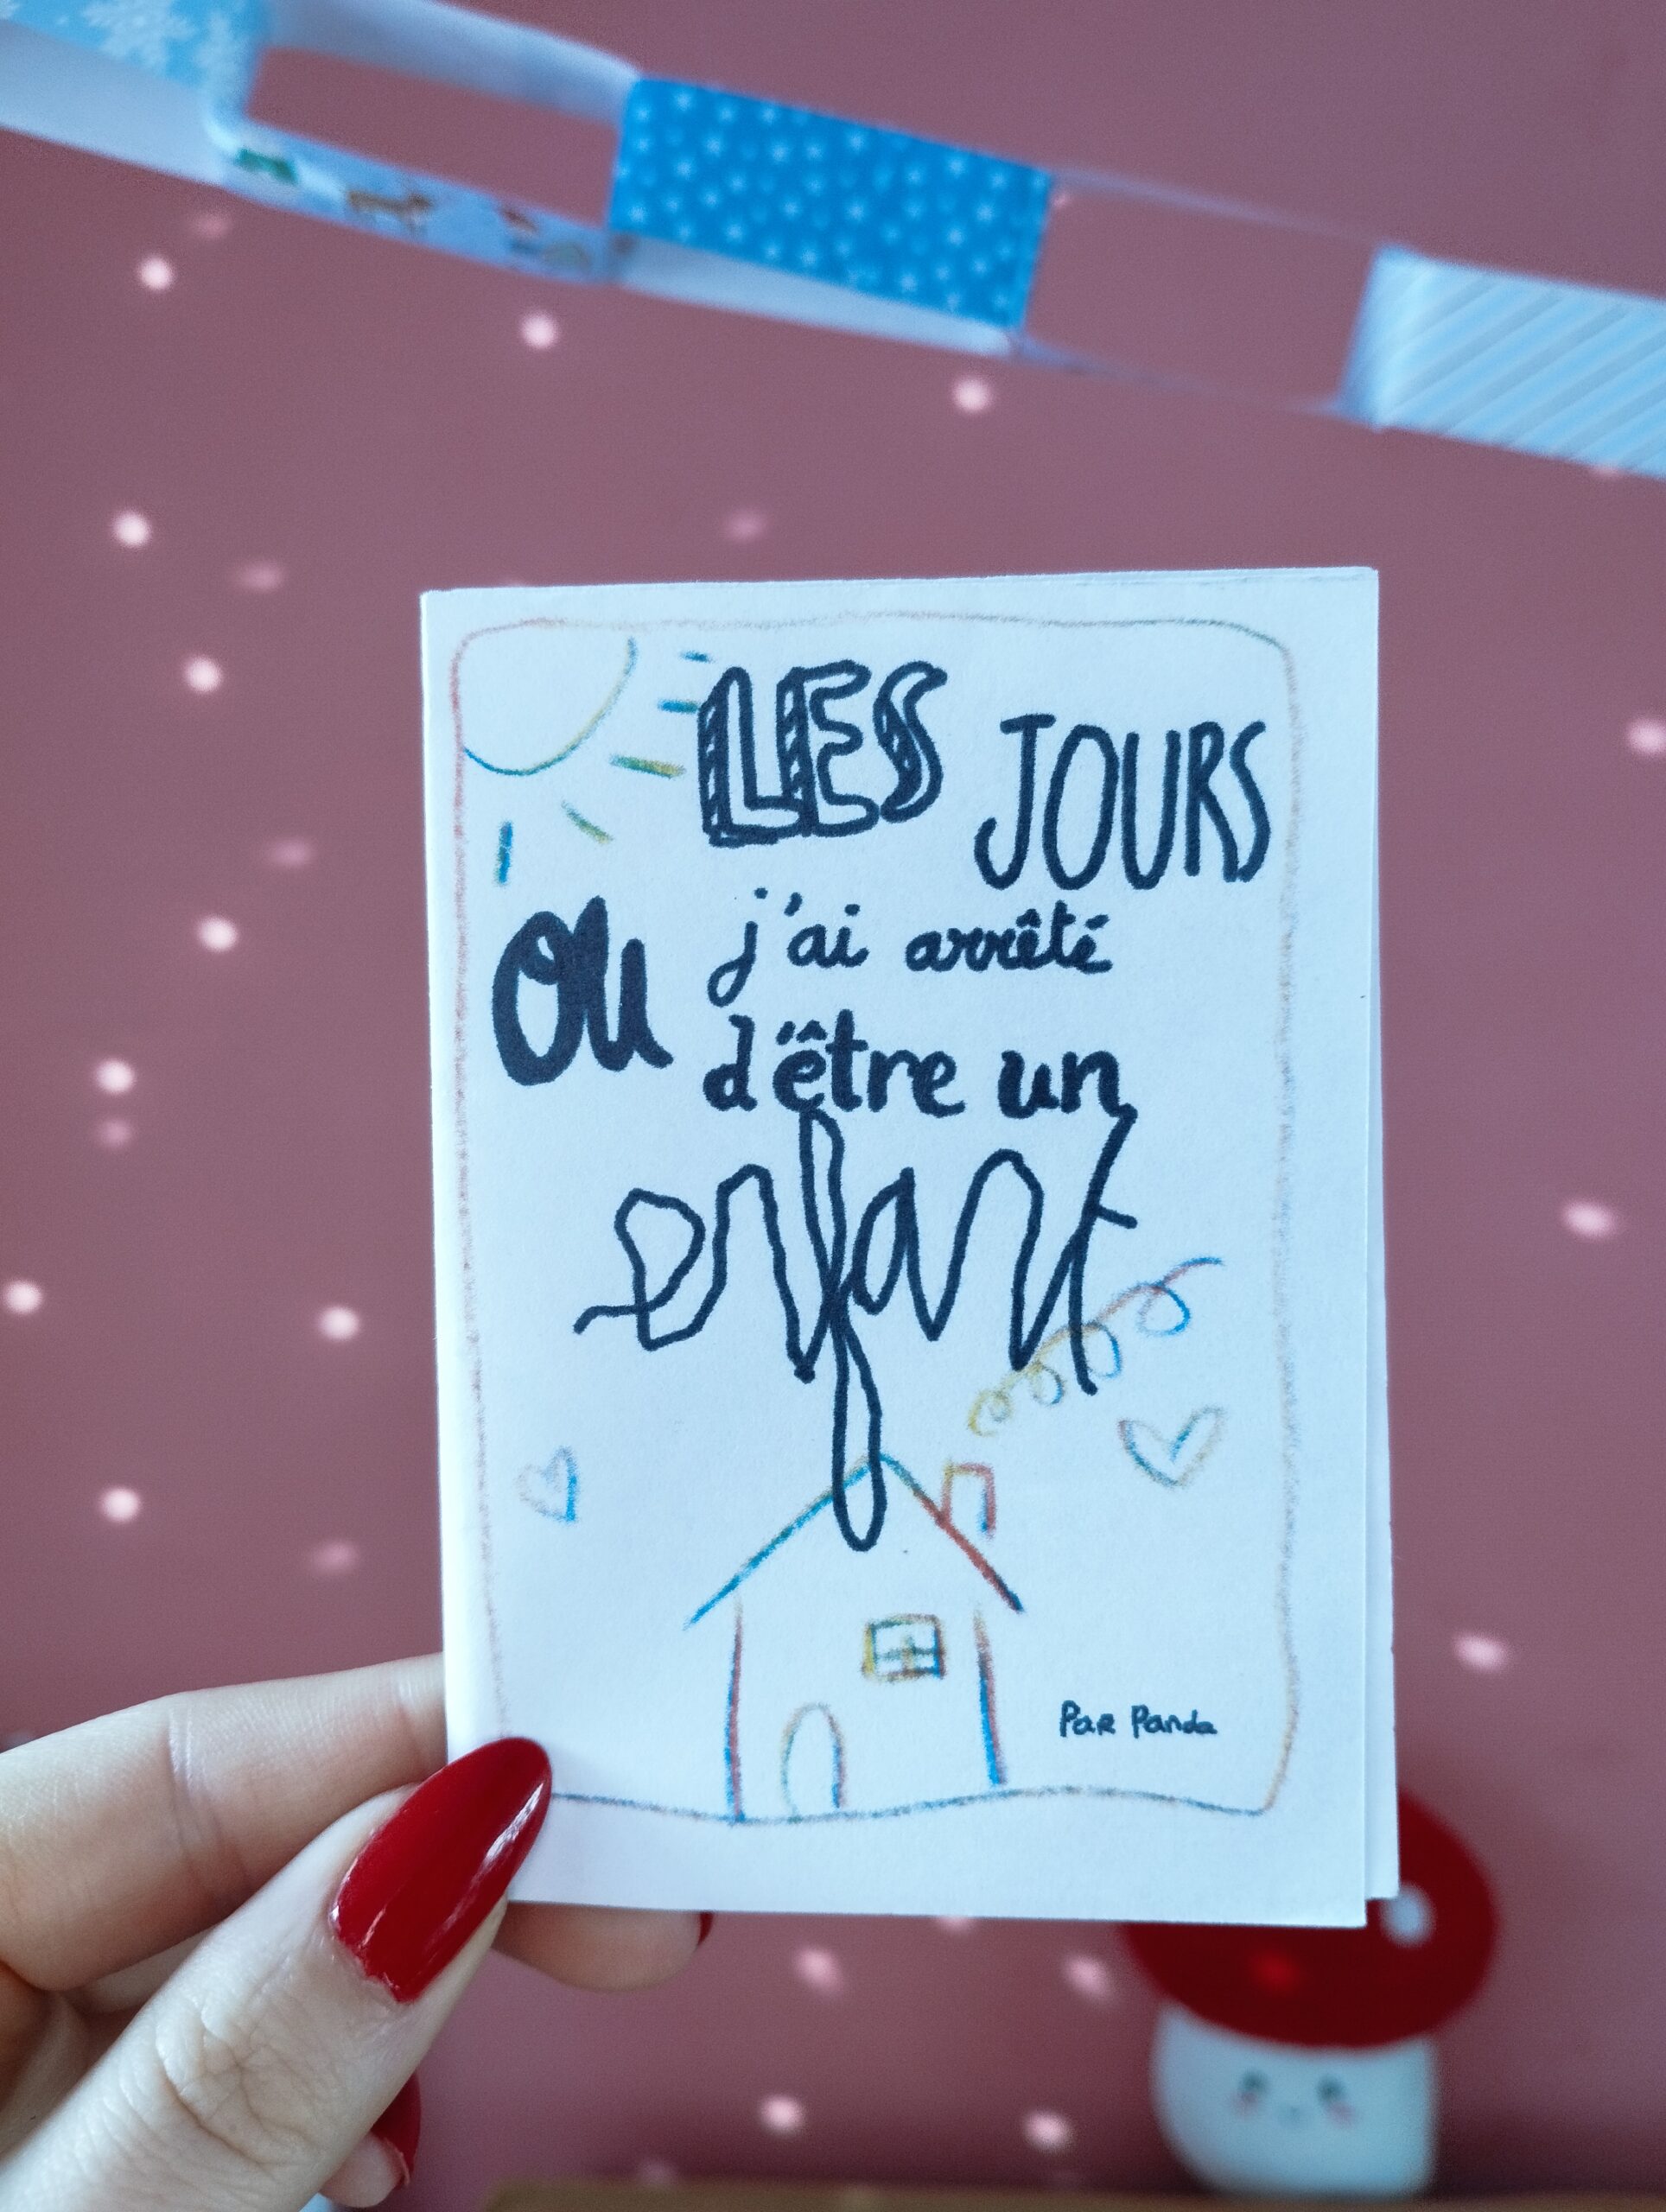 LES JOURS
OU j'ai arrêté
d'être un
enfant
Par Panda